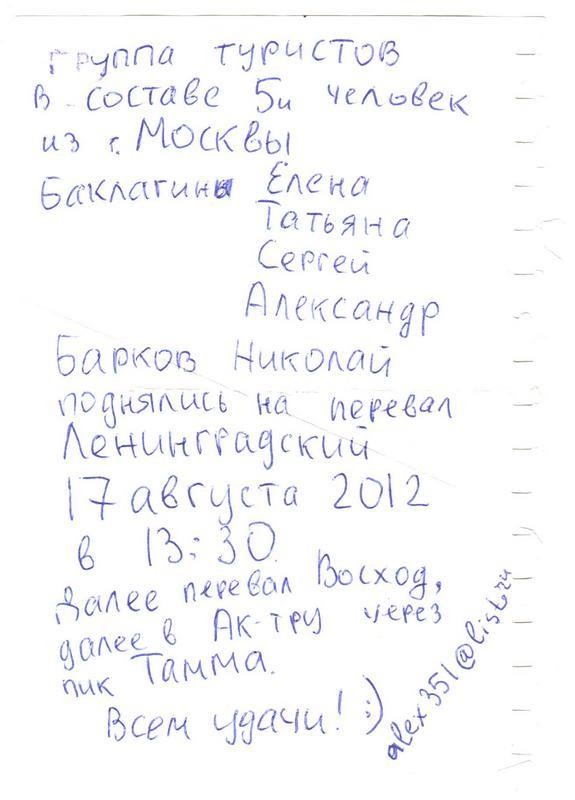 группа туристов
в составе 5и человек
из г. Москвы
Баклагины Елена
Татьяна
Сергей
Александр
Барков Николай
поднялись на перевал
Ленинградский
17 августа 2012
в 13:30.
Далее перевал Восход,
далее в Ак-тру через
пик Тамма.
Всем удачи! :)
alex351@list.ru